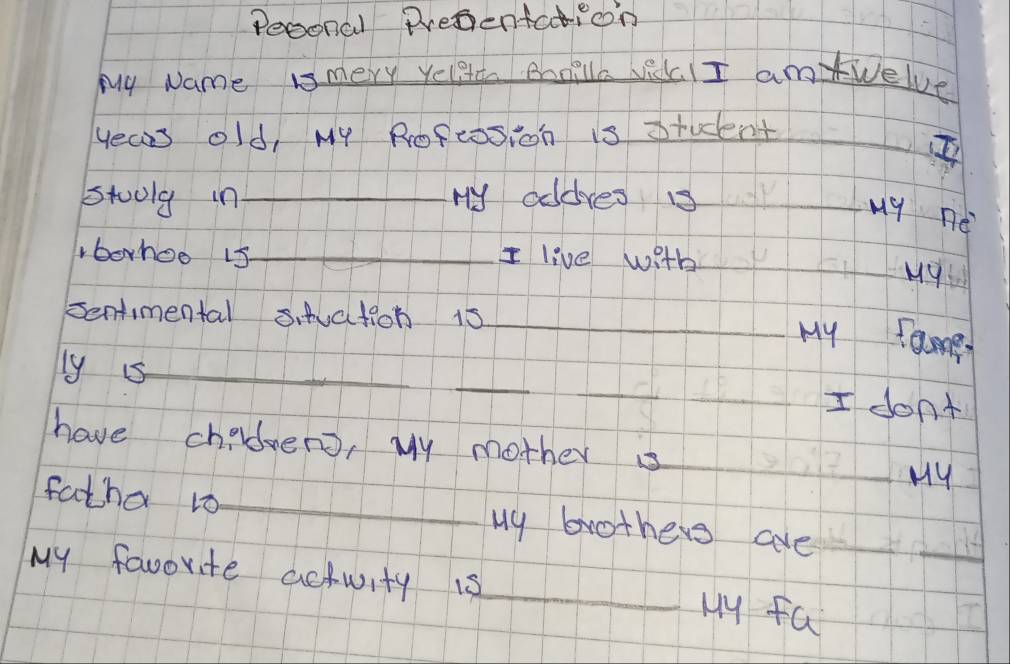 Pesonal Presentation
My Name is mery yelitza Bonilla vidal I am twelve
years old, My Profession is student I
study in My addres is My ne
iborhoo is I live with My
sentimental situation is My fami-
ly is I dont
have childrens, My mother is My
father is My brothers are
My favorite activity is My fa